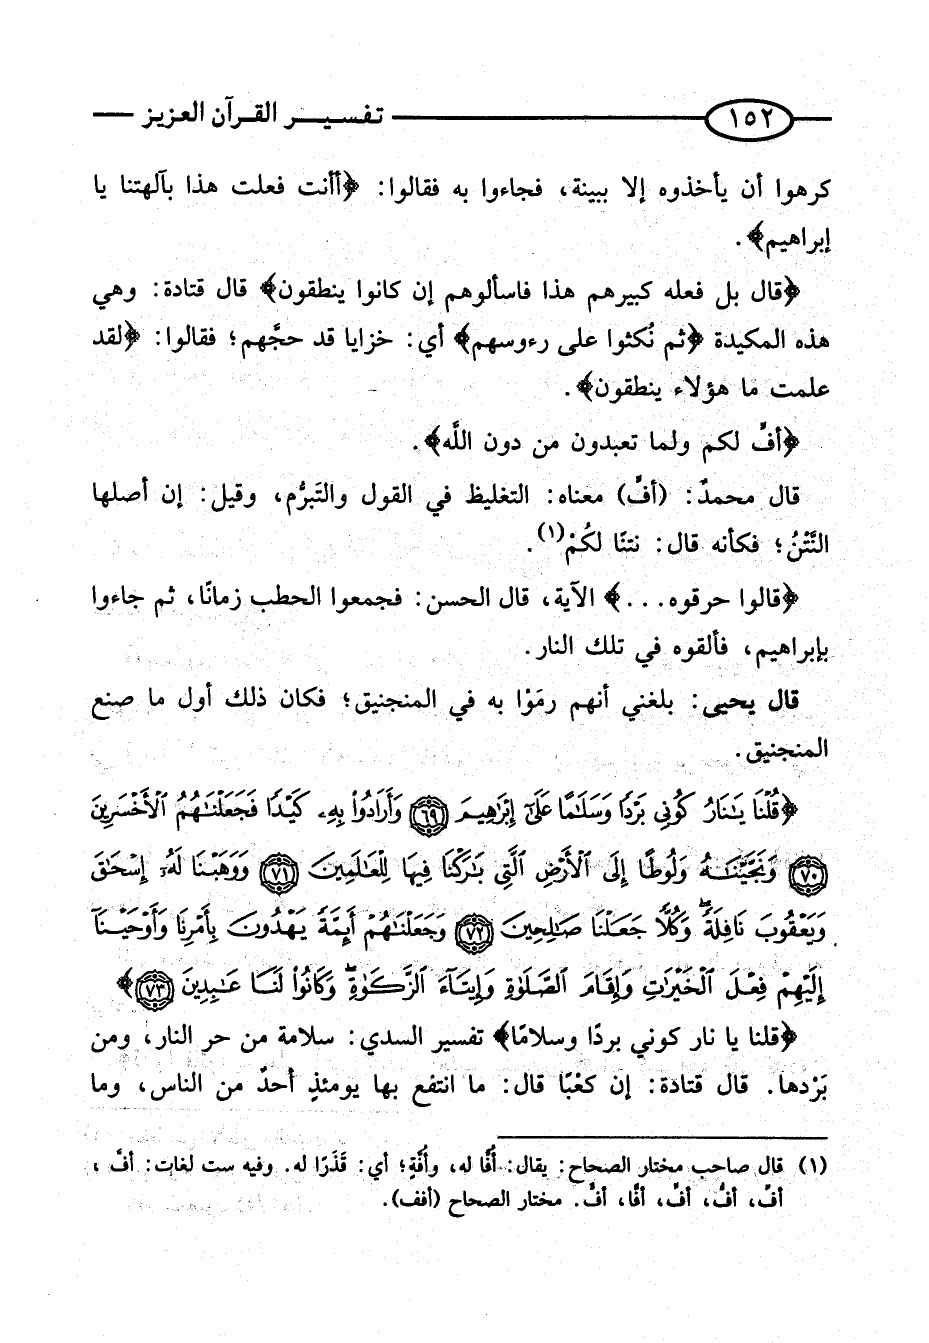 ١٥٢ تفسير القرآن العزيز
كرهوا أن يأخذوه إلا ببينة، فجاءوا به فقالوا: ﴿أأنت فعلت هذا بآلهتنا يا
إبراهيم﴾.
﴿قال بل فعله كبيرهم هذا فاسألوهم إن كانوا ينطقون﴾ قال قتادة: وهي
هذه المكيدة ﴿ثم نُكثوا على رءوسهم﴾ أي: خزايا قد حجَّهم؛ فقالوا: ﴿لقد
علمت ما هؤلاء ينطقون﴾.
﴿أفٍّ لكم ولما تعبدون من دون اللَّه﴾.
قال محمدٌ: (أفٍّ) معناه: التغليظ في القول والتَبرُّم، وقيل: إن أصلها
النَّتْنُ؛ فكأنه قال: نتنًا لكُمْ(١).
﴿قالوا حرقوه...﴾ الآية، قال الحسن: فجمعوا الحطب زمانًا، ثم جاءوا
بإبراهيم، فألقوه في تلك النار.
قال يحيى: بلغني أنهم رمَوْا به في المنجنيق؛ فكان ذلك أول ما صنع
المنجنيق.
﴿قُلْنَا يَٰنَارُ كُونِي بَرْدًا وَسَلَٰمًا عَلَىٰٓ إِبْرَٰهِيمَ ٦٩ وَأَرَادُوا۟ بِهِۦ كَيْدًا فَجَعَلْنَٰهُمُ ٱلْأَخْسَرِينَ
٧٠ وَنَجَّيْنَٰهُ وَلُوطًا إِلَى ٱلْأَرْضِ ٱلَّتِي بَٰرَكْنَا فِيهَا لِلْعَٰلَمِينَ ٧١ وَوَهَبْنَا لَهُۥٓ إِسْحَٰقَ
وَيَعْقُوبَ نَافِلَةً ۖ وَكُلًّا جَعَلْنَا صَٰلِحِينَ ٧٢ وَجَعَلْنَٰهُمْ أَئِمَّةً يَهْدُونَ بِأَمْرِنَا وَأَوْحَيْنَآ
إِلَيْهِمْ فِعْلَ ٱلْخَيْرَٰتِ وَإِقَامَ ٱلصَّلَوٰةِ وَإِيتَآءَ ٱلزَّكَوٰةِ ۖ وَكَانُوا۟ لَنَا عَٰبِدِينَ ٧٣﴾
﴿قلنا يا نار كوني بردًا وسلامًا﴾ تفسير السدي: سلامة من حر النار، ومن
بَرْدها. قال قتادة: إن كعْبًا قال: ما انتفع بها يومئذٍ أحدٌ من الناس، وما
(١) قال صاحب مختار الصحاح: يقال: أُفًّا له، وأُفّةٍ؛ أي: قَذَرًا له. وفيه ست لغات: أفَّ،
أفِّ، أفُّ، أفٍّ، أفًّا، أفٌّ. مختار الصحاح (أفف).